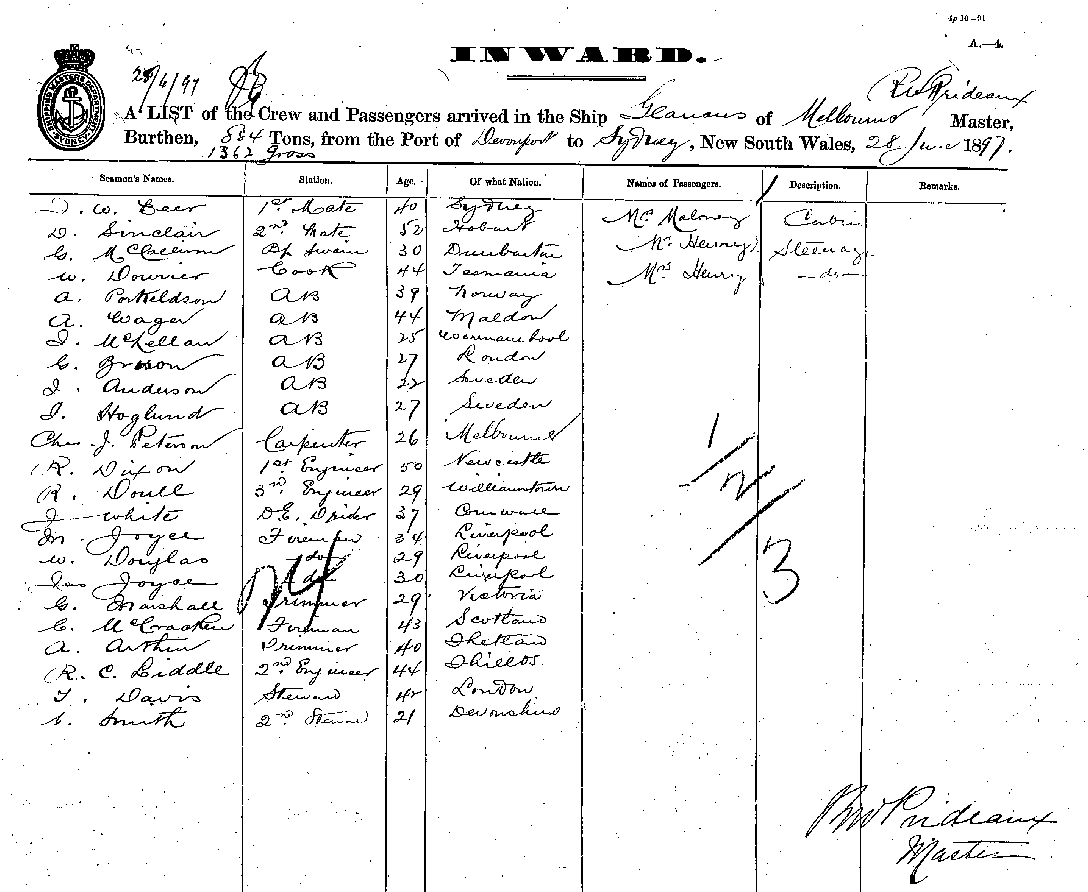 4p 10-91
A.—4.
INWARD.
28/6/97
A LIST of the Crew and Passengers arrived in the Ship Glanaus of Melbourne R W Prideaux Master,
Burthen, 884 Tons, from the Port of Devonport to Sydney, New South Wales, 28 June 1897.
1362 Gross
Seamen's Names. Station. Age. Of what Nation. Names of Passengers. Description. Remarks.
D. W. Beer 1st Mate 40 Sydney Mr. Maloney Cabin
D. Sinclair 2nd Mate 52 Hobart Mr Henry Steerage
G. McCallum Bo Swain 30 Dumbarton Mrs Henry —do—
W. Dourier Cook 44 Tasmania
A. Porkeldson AB 39 Norway
A. Wager AB 44 Maldon
D. McLellan AB 25 Warrnambool
G. Brown AB 27 London
J. Anderson AB 22 Sweden
J. Hoglund AB 27 Sweden
Chas. J. Peterson Carpenter 26 Melbourne
R. Dixon 1st Engineer 50 Newcastle
R. Doull 3rd Engineer 29 Williamstown
J White 37 Cornwall
M Joyce Fireman 34 Liverpool
W. Douglas do 29 Liverpool
Jas Joyce do 30 Liverpool
G. Marshall Trimmer 29 Victoria
C. McCracken Fireman 43 Scotland
A. Arthur Trimmer 40 Shetland
R. C. Liddle 2nd Engineer 44 Shields
T. Davis Steward 42 London
C. Smith 2nd Steward 21 Devonshire
24
1
2
3
R W Prideaux
Master